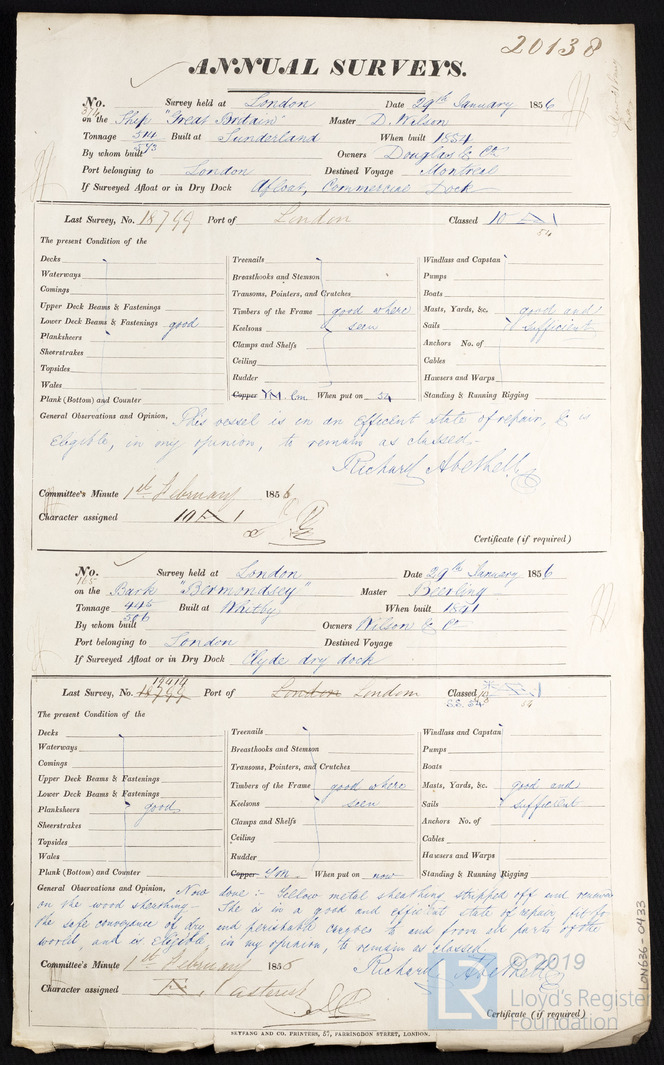 20138
ANNUAL SURVEYS.
No. 374 Survey held at London Date 29th January 1856
on the Ship "Great Britain" Master D. Wilson
Tonnage 514 Built at Sunderland When built 1834
573
By whom built Owners Douglas & Co
Port belonging to London Destined Voyage Montreal
If Surveyed Afloat or in Dry Dock Afloat, Commercial Dock
Last Survey, No. 18799 Port of London Classed 10 A 1
54
The present Condition of the
Decks Treenails Windlass and Capstan
Waterways Breasthooks and Stemson Pumps
Comings Transoms, Pointers, and Crutches Boats
Upper Deck Beams & Fastenings Timbers of the Frame good where Masts, Yards, &c. good and
Lower Deck Beams & Fastenings good Keelsons seen Sails sufficient
Planksheers Clamps and Shelfs Anchors No. of
Sheerstrakes Ceiling Cables
Topsides Rudder Hawsers and Warps
Wales Copper YM. When put on 54 Standing & Running Rigging
Plank (Bottom) and Counter
General Observations and Opinion, This vessel is in an efficient state of repair, & is
eligible, in my opinion, to remain as classed.-
Richard Abethell
Committee's Minute 1st February 1856
Character assigned 10 A 1
Certificate (if required)
No. 165 Survey held at London Date 29th January 1856
on the Bark "Bermondsey" Master Beerling
Tonnage 446 Built at Whitby When built 1841
506
By whom built Owners Wilson & Co
Port belonging to London Destined Voyage
If Surveyed Afloat or in Dry Dock Clyde dry dock
19419
Last Survey, No. 18799 Port of London London Classed A 1
54
The present Condition of the
Decks Treenails Windlass and Capstan
Waterways Breasthooks and Stemson Pumps
Comings Transoms, Pointers, and Crutches Boats
Upper Deck Beams & Fastenings Timbers of the Frame good where Masts, Yards, &c. good and
Lower Deck Beams & Fastenings Keelsons seen Sails sufficient
Planksheers good Clamps and Shelfs Anchors No. of
Sheerstrakes Ceiling Cables
Topsides Rudder Hawsers and Warps
Wales Copper YM. When put on now Standing & Running Rigging
Plank (Bottom) and Counter
General Observations and Opinion, Now done :- Yellow metal sheathing stripped off and renewed
on the wood sheathing.- She is in a good and efficient state of repair, fit for
the safe conveyance of dry and perishable cargoes to and from all parts of the
world, and is eligible, in my opinion, to remain as classed.
Richard Abethell
Committee's Minute 1st February 1856
Character assigned Æ. 1 asterisk
Certificate (if required)
SEYFANG AND CO. PRINTERS, 57, FARRINGDON STREET, LONDON.
LON636-0433
LR
© 2019
Lloyd's Register
Foundation